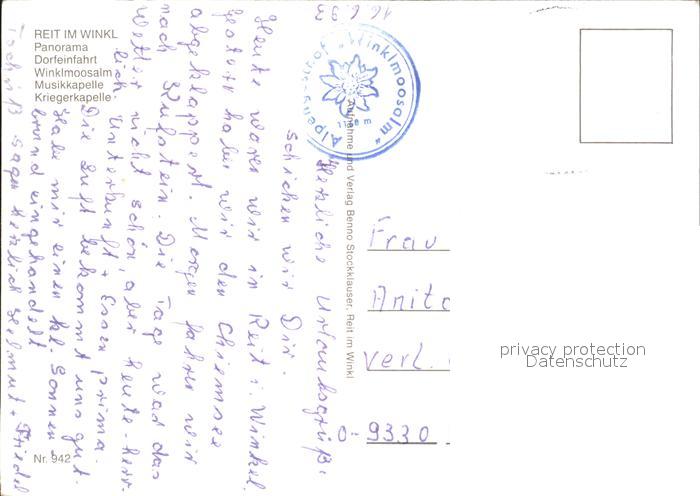 REIT IM WINKL
Panorama
Dorfeinfahrt
Winklmoosalm
Musikkapelle
Kriegerkapelle
16.6.93
Alpengasthof "Winklmoosalm"
1160 m
Aufnahme und Verlag Benno Stockklauser, Reit im Winkl
Herzliche Urlaubsgrüße
schicken wir Dir.
Heute waren wir in Reit i. Winkel.
Gestern haben wir den Chiemsee
abgeklappert. Morgen fahren wir
nach Kufstein. Die Tage war das
Wetter nicht schön, aber heute herr-
lich. Unterkunft + Essen prima.
Die Luft bekommt uns gut.
Habe mir einen kl. Sonnen-
brand eingehandelt
Tschüß sagen herzlich Helmut + Friedel
Frau
Anita
verl.
O-9330
Nr. 942
privacy protection
Datenschutz